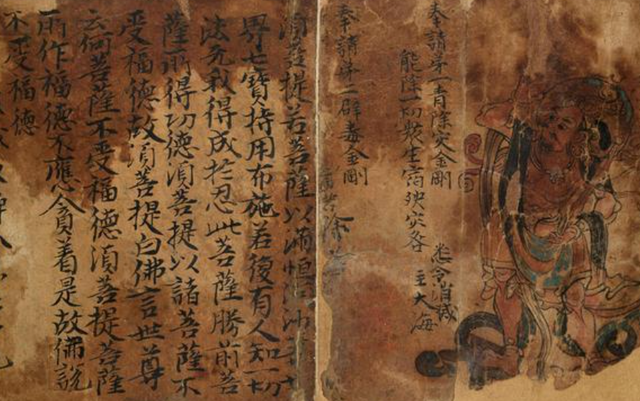 奉請第一青除灾金剛
能除一切衆生宿殃灾咎
悉令消滅
主大海
奉請第二辟毒金剛
須菩提若菩薩以滿恒河沙等世
界七寶持用布施若復有人知一切
法无我得成於忍此菩薩勝前菩
薩所得功德須菩提以諸菩薩不
受福德故須菩提白佛言世尊
云何菩薩不受福德須菩提菩薩
所作福德不應貪着是故佛說
不受福德